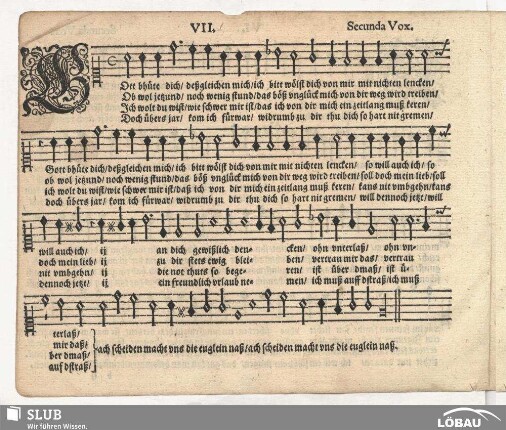 VII. Secunda Vox.
Ott bhüte dich/ deßgleichen mich/ ich bitt wölst dich von mir mit nichten lencken/
Ob wol jetzund/ noch wenig stund/ das böß vnglück mich von dir weg wird treiben/
Ich wolt du wist/ wie schwer mir ist/ das ich von dir mich ein zeitlang muß keren/
Doch übers jar/ kom ich fürwar/ widrumb zu dir thu dich so hart nit gremen/
Gott bhüte dich/ deßgleichen mich/ ich bitt wölst dich von mir mit nichten lencken/ so will auch ich/ so
ob wol jetzund/ noch wenig stund/ das böß vnglück mich von dir weg wird treiben/ soll doch mein lieb/ soll
ich wolt du wist/ wie schwer mir ist/ daß ich von dir mich ein zeitlang muß keren/ kans nit vmbgehn/ kans
doch übers jar/ kom ich fürwar/ widrumb zu dir thu dich so hart nit gremen/ will dennoch jetzt/ will
will auch ich/ ij an dich gewißlich den- cken/ ohn vnterlaß/ ohn vn-
doch mein lieb/ ij zu dir stets ewig blei- ben/ vertrau mir das/ vertrau
nit vmbgehn/ ij die not thuts so bege- ren/ ist über dmaß/ ist ü-
dennoch jetzt/ ij ein freundlich vrlaub ne- men/ ich muß auff dstraß/ ich muß
terlaß/
mir daß/
ber dmaß/
auf dstraß/
ach scheiden macht vns die euglein naß/ ach scheiden macht vns die euglein naß.
SLUB
Wir führen Wissen.
LÖBAU